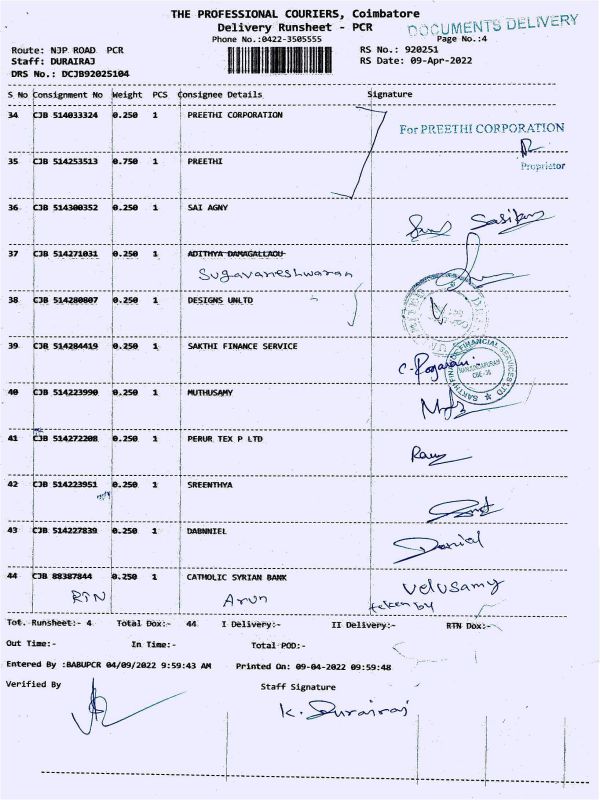 THE PROFESSIONAL COURIERS, Coimbatore
Delivery Runsheet - PCR
DOCUMENTS DELIVERY
Phone No.:0422-3505555
Page No.:4
Route: NJP ROAD PCR
RS No.: 920251
Staff: DURAIRAJ
RS Date: 09-Apr-2022
DRS No.: DCJB92025104
S No Consignment No Weight PCS Consignee Details Signature
34 CJB 514033324 0.250 1 PREETHI CORPORATION
For PREETHI CORPORATION
Proprietor
35 CJB 514253513 0.750 1 PREETHI
36 CJB 514300352 0.250 1 SAI AGNY
Sasikum
37 CJB 514271031 0.250 1 ADITHYA DAMAGALLAOU
Sugavaneshwaran
38 CJB 514280807 0.250 1 DESIGNS UNLTD
39 CJB 514284419 0.250 1 SAKTHI FINANCE SERVICE
SAKTHI FINANCIAL SERVICES LTD
40 CJB 514223990 0.250 1 MUTHUSAMY
41 CJB 514272208 0.250 1 PERUR TEX P LTD
42 CJB 514223951 0.250 1 SREENTHYA
43 CJB 514227839 0.250 1 DABNNIEL
Daniel
44 CJB 88387844 0.250 1 CATHOLIC SYRIAN BANK
RTN Arun Velusamy
taken by
Tot. Runsheet:- 4 Total Dox:- 44 I Delivery:- II Delivery:- RTN Dox:-
Out Time:- In Time:- Total POD:-
Entered By :BABUPCR 04/09/2022 9:59:43 AM Printed On: 09-04-2022 09:59:48
Verified By Staff Signature
K. Durairaj